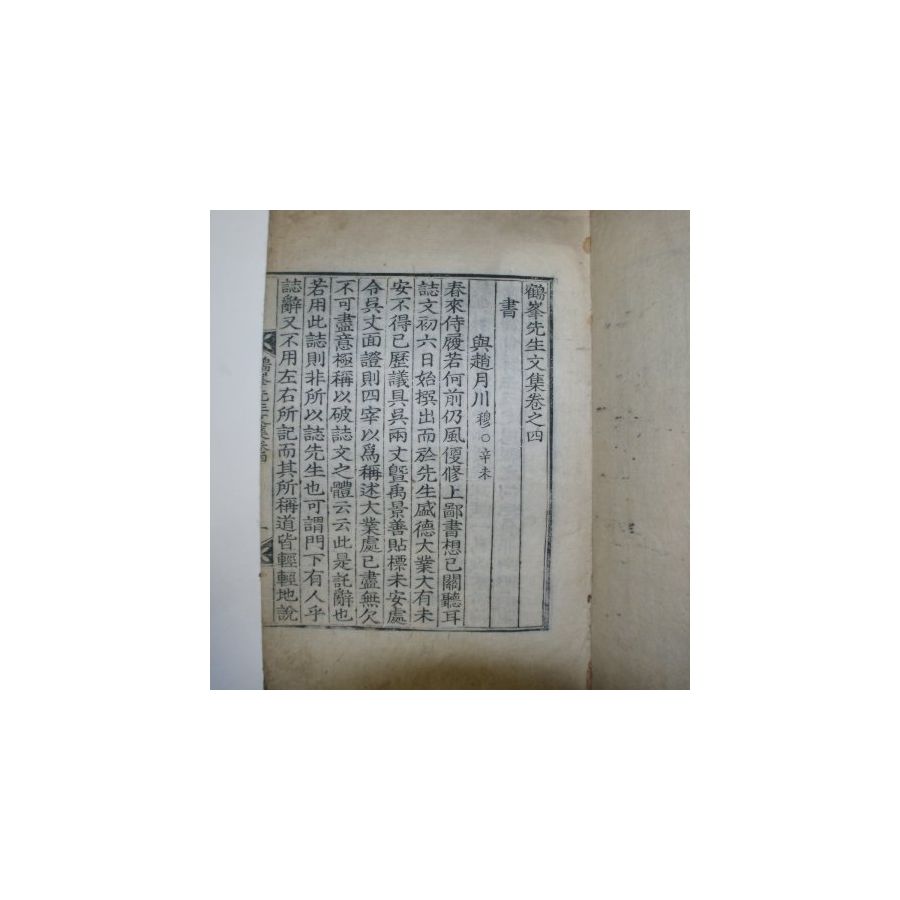 鶴峯先生文集卷之四
書
與趙月川 穆○辛未
春來侍履若何前仍風便修上鄙書想已關聽耳
誌文初六日始撰出而於先生盛德大業大有未
安不得已歷議具吳兩丈曁禹景善貼標未安處
令吳丈面證則四宰以爲稱述大業處已盡無欠
不可盡意極稱以破誌文之體云云此是託辭也
若用此誌則非所以誌先生也可謂門下有人乎
誌辭又不用左右所記而其所稱道皆輕輕地說